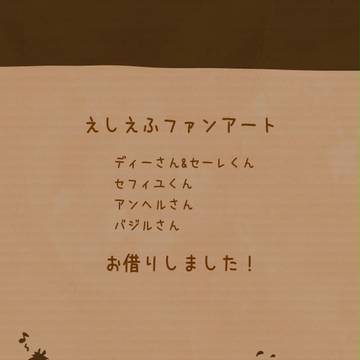 えしえふファンアート
ディーさん&セーレくん
セフィユくん
アンヘルさん
バジルさん
お借りしました！